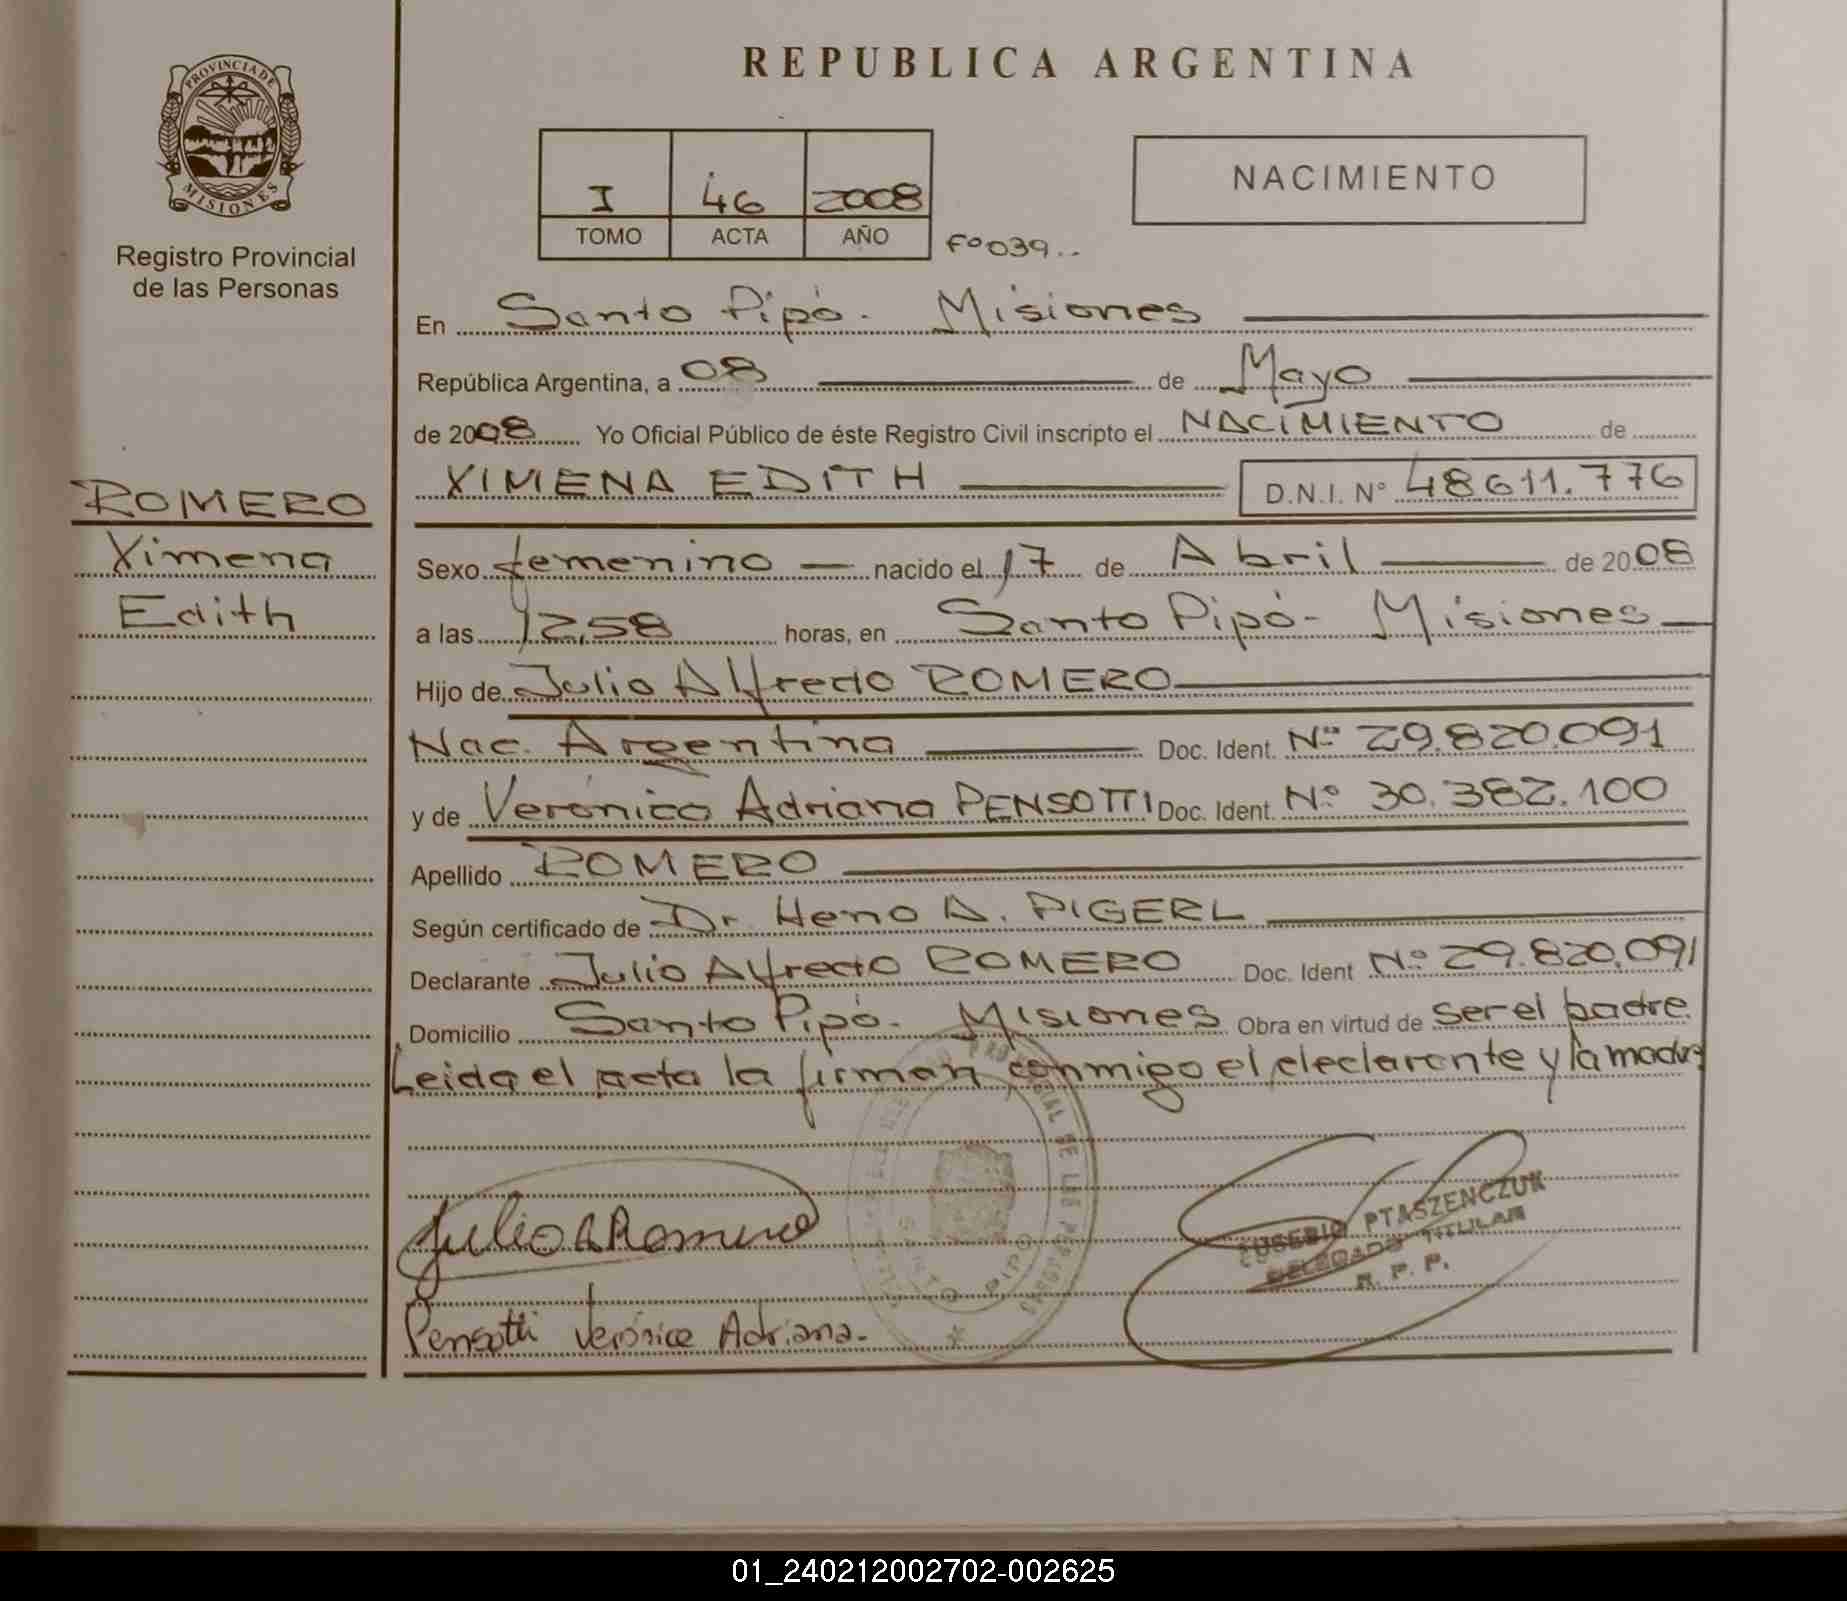 REPUBLICA ARGENTINA
PROVINCIA DE
MISIONES
Registro Provincial
de las Personas
NACIMIENTO
I 46 2008
TOMO ACTA AÑO Fº039..
En Santo Pipó. Misiones
República Argentina, a 08 de Mayo
de 2008 Yo Oficial Público de éste Registro Civil inscripto el NACIMIENTO de
XIMENA EDITH D.N.I. Nº 48611.776
ROMERO
Ximena
Edith
Sexo femenino nacido el 17 de Abril de 2008
a las 12,58 horas, en Santo Pipó- Misiones
Hijo de Julio Alfredo ROMERO
Nac. Argentina Doc. Ident. Nº 29.820.091
y de Verónica Adriana PENSOTTI Doc. Ident. Nº 30.382.100
Apellido ROMERO
Según certificado de Dr. Heno A. PIGERL
Declarante Julio Alfredo ROMERO Doc. Ident Nº 29.820.091
Domicilio Santo Pipó. Misiones Obra en virtud de ser el padre.
Leida el acta la firman conmigo el declarante y la madre
Julio A Romero
Pensotti Verónica Adriana.
SANTO PIPO
EUSEBIO PTASZENCZUK
DELEGADO TITULAR
R. P. P.
01_240212002702-002625